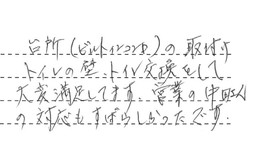 台所(ビルトインコンロ)の取付け
トイレの壁、トイレ交換をして
大変満足してます。営業の中町さん
の対応もすばらしかったです。